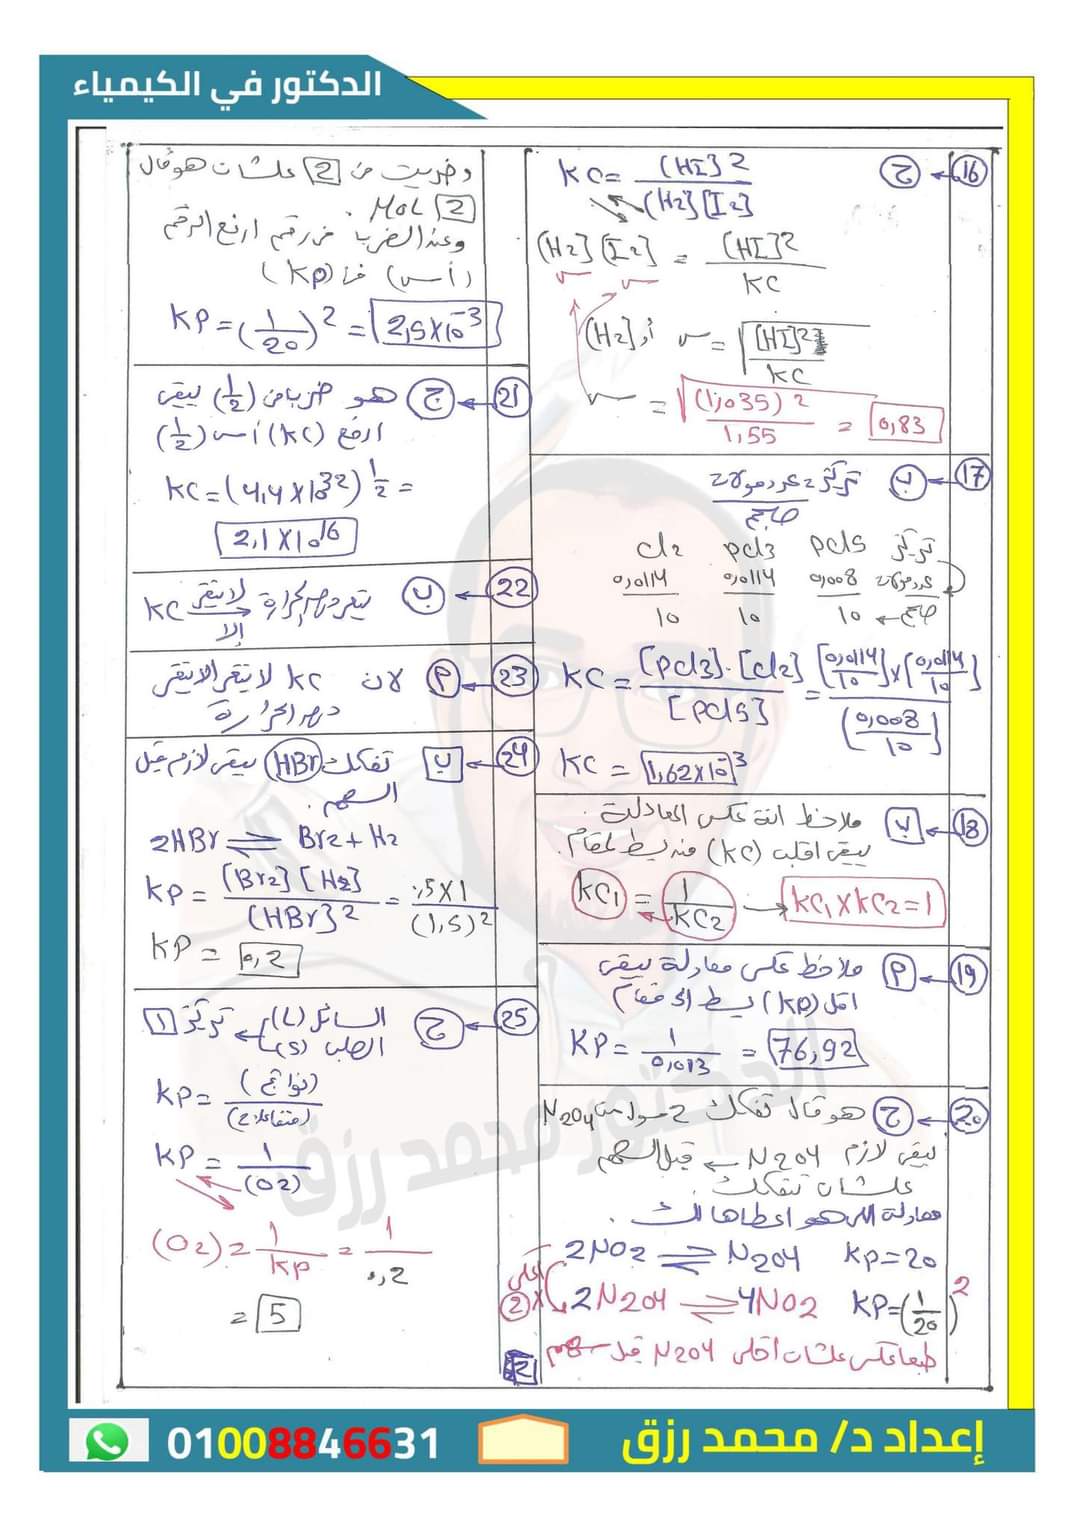 الدكتور في الكيمياء
16 ← ج
KC = [HI]2 / [H2][I2]
[H2][I2] = [HI]2 / KC
س س
س أو [H2] = √[HI]2 / KC
س = √(1,035)2 / 1,55 = 0,83
17 ← ب
تركيز = عدد مولات / حجم
تركيز PCl5 PCl3 Cl2
عدد مولات 0,008 0,0114 0,0114
حجم ← 10 10 10
KC = [PCl3].[Cl2] / [PCl5] = [0,0114/10]×[0,0114/10] / [0,008/10]
KC = 1,62×10-3
18 ← ب
ملاحظ انة عكس المعادلة
يبقى اقلب (KC) من بسط لمقام.
KC1 = 1 / KC2 → KC1 × KC2 = 1
19 ← P
ملاحظ عكس معادلة يبقى
اقلب (KP) بسط الى مقام
KP = 1 / 0,013 = 76,92
20 ← ج
هو قال تفكك 2 مول من N2O4
يبقى لازم N2O4 ← قبل السهم
علشان تتفكك.
معادلة اللى هو اعطاها لك.
2NO2 ⇌ N2O4 KP = 20
2N2O4 ⇌ 4NO2 KP = (1/20)2
×2
طبعا عكس علشان أخلى N2O4 قبل سهم
وضربت من 2 علشان هو قال
2 MOL.
وعند الضرب من رقم ارفع الرقم
(أس) لـ (KP)
KP = (1/20)2 = 2,5×10-3
21 ← ج
هو ضرب من (1/2) يبقى
ارفع (KC) أس (1/2)
KC = (4,4×1032)1/2 =
2,1×1016
22 ← ب
KC لا تتغير إلا بتغير درجة الحرارة
23 ← P
لان KC لا يتغير الا بتغير
درجة الحرارة
24 ← ب
تفكك HBr يبقى لازم قبل
السهم.
2HBr ⇌ Br2 + H2
KP = [Br2][H2] / [HBr]2 = ,5×1 / (1,5)2
KP = 0,2
25 ← ج
السائل (L)
الصلب (S) ← تركيز 1
KP = (نواتج) / (متفاعلات)
KP = 1 / (O2)
(O2) = 1 / KP = 1 / 0,2
= 5
2
01008846631
إعداد د/ محمد رزق
الدكتور محمد رزق